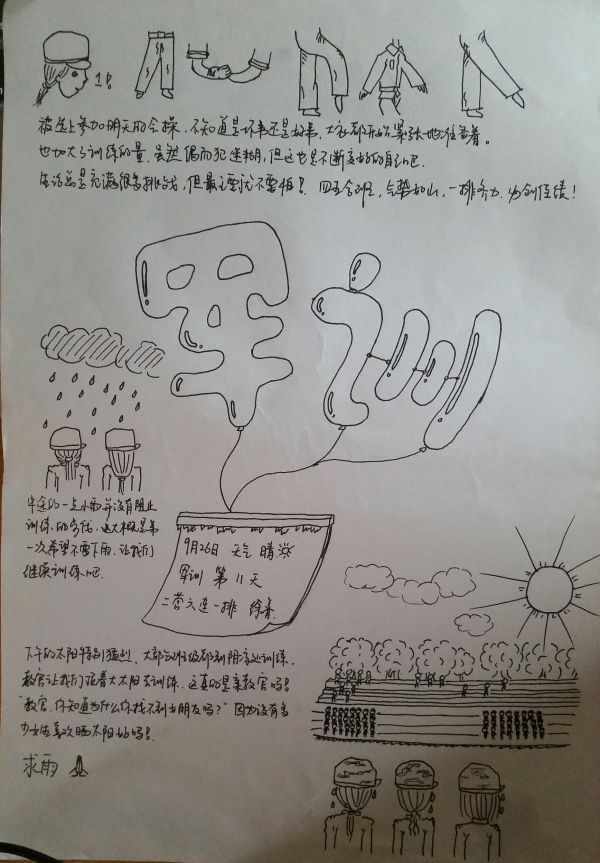 1！
被选上参加明天的会操，不知道是坏事还是好事，大家都开始紧张地往着。
也加大了训练的量，虽然偶而犯迷糊，但这也是不断变好的自己吧
生活总是充满很多挑战，但最主要就不要怕！四五合班，气势如山，一排齐力，力创佳绩！
军训
半途的一点小雨并没有阻止
训练的步伐，这大概是第
一次希望不要下雨，让我们
继续训练吧
9月26日 天气 晴
军训 第11天
二营六连一排 徐
下午的太阳特别猛烈，大部分班级都到阴凉处训练，
教官让我们在着大太阳去训练，这真的是亲教官吗！
"教官，你知道为什么你找不到女朋友吗？"因为没有多
少女生喜欢晒太阳好吗！
求雨